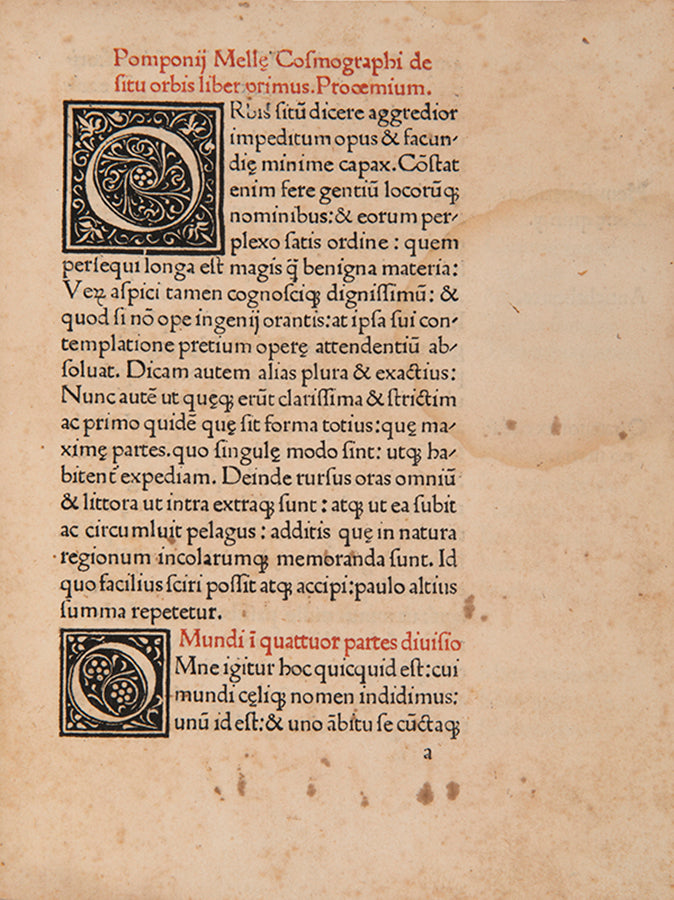 Pomponij Mellę Cosmographi de
situ orbis liber primus. Prooemium.
ORbis sitū dicere aggredior
impeditum opus & facun-
dię minime capax. Cōstat
enim fere gentiū locorūqꝫ
nominibus: & eorum per-
plexo satis ordine: quem
persequi longa est magis q̄ benigna materia:
Veꝝ aspici tamen cognosciqꝫ dignissimū: &
quod si nō ope ingenij orantis: at ipsa sui con-
templatione pretium operę attendentiū ab-
soluat. Dicam autem alias plura & exactius:
Nunc autē ut quęqꝫ erūt clarissima & strictim
ac primo quidē quę sit forma totius: quę ma-
ximę partes. quo singulę modo sint: utqꝫ ha-
bitent᷑ expediam. Deinde rursus oras omniū
& littora ut intra extraqꝫ sunt: atqꝫ ut ea subit
ac circumluit pelagus: additis quę in natura
regionum incolarumqꝫ memoranda sunt. Id
quo facilius sciri possit atqꝫ accipi: paulo altius
summa repetetur.
Mundi ī quattuor partes diuisio
OMne igitur hoc quicquid est: cui
mundi cęliqꝫ nomen indidimus:
unū id est: & uno ābitu se cūctaqꝫ
a